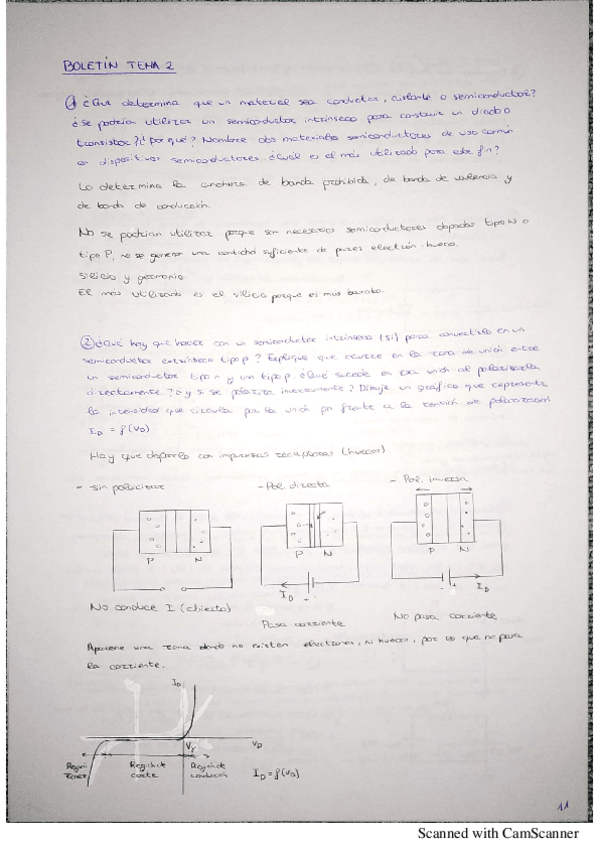 BOLETÍN TEMA 2
① ¿Qué determina que un material sea conductor, aislante o semiconductor?
¿Se podría utilizar un semiconductor intrínseco para construir un diodo o
transistor? ¿Por qué? Nombre dos materiales semiconductores de uso común
en dispositivos semiconductores. ¿Cuál es el más utilizado para este fin?
Lo determina la anchura de banda prohibida, de banda de valencia y
de banda de conducción.
No se podrían utilizar porque son necesarios semiconductores dopados tipo N o
tipo P, no se generan una cantidad suficiente de pares electrón-hueco.
Silicio y germanio.
El más utilizado es el silicio porque es más barato.
② ¿Qué hay que hacer con un semiconductor intrínseco (Si) para convertirlo en un
semiconductor extrínseco tipo p? Explique que ocurre en la zona de unión entre
un semiconductor tipo n y un tipo p. ¿Qué sucede en esa unión al polarizarla
directamente? ¿y si se polariza inversamente? Dibuje un gráfico que represente
la intensidad que circula por la unión pn frente a la tensión de polarización
I_D = f(V_D)
Hay que doparlo con impurezas receptoras (huecos)
- Sin polarizar
- Pol. directa
- Pol. inversa
P N
P N
P N
I_D - +
- + I_D
No conduce I (abierto)
Pasa corriente
No pasa corriente
Aparece una zona donde no existen electrones, ni huecos, por lo que no pasa
la corriente.
I_D
V_γ
V_D
Región
Región de corte
Región de conducción
I_D = f(V_D)
11
Scanned with CamScanner